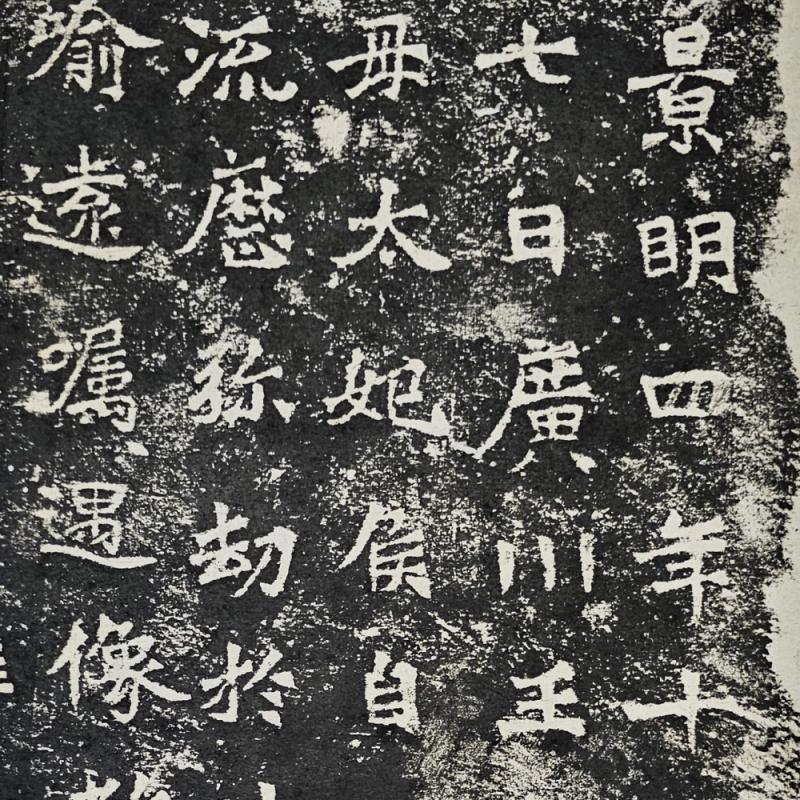 景明四年十
七日廣川王
母太妃侯自
流歷弥劫於
喻遠囑遇像